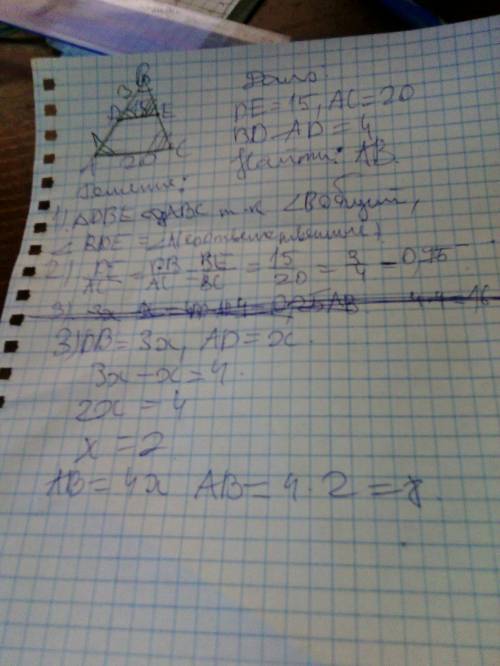 B
D 15 E
A 20 C
Дано:
DE=15, AC=20
BD-AD=4
Найти: AB.
Решение:
1) ΔDBE ∾ ΔABC т.к ∠B общий,
∠BDE = ∠A(соответственные)
2) DE/AC = DB/AC = BE/BC = 15/20 = 3/4 = 0,75
3) DB=3x, AD=x.
3x-x=4.
2x=4
x=2
AB=4x AB=4·2=8.